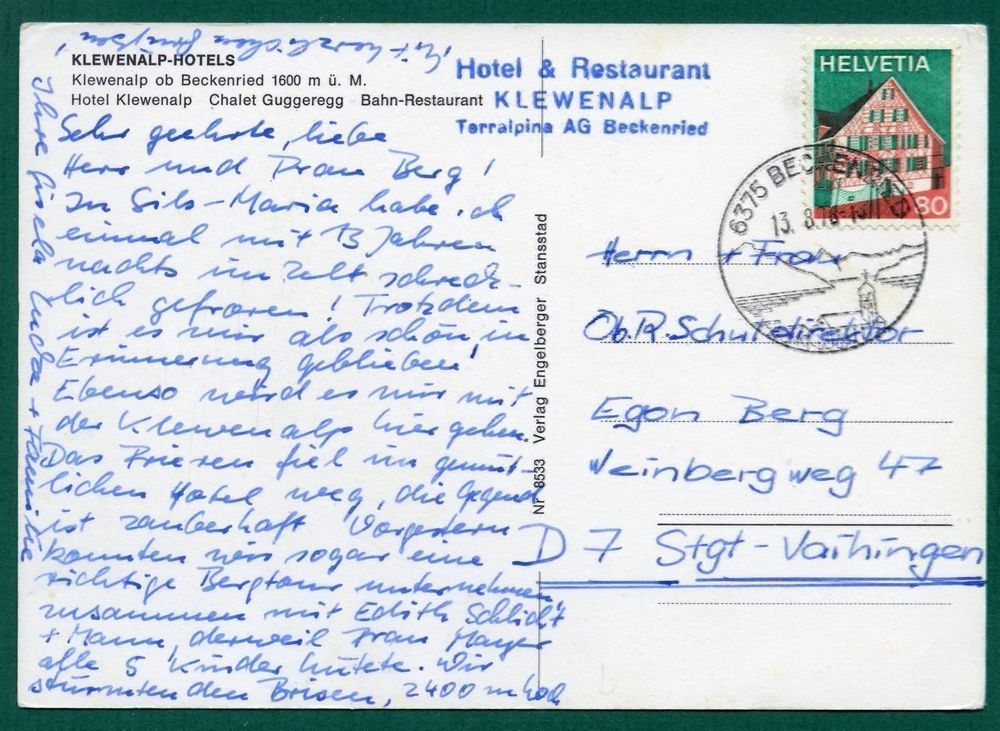 KLEWENALP-HOTELS
Klewenalp ob Beckenried 1600 m ü. M.
Hotel Klewenalp Chalet Guggeregg Bahn-Restaurant
Sehr geehrte, liebe
Herr und Frau Berg!
In Sils-Maria habe ich
einmal mit 13 Jahren
nachts im Zelt schreck-
lich gefroren! Trotzdem
ist es mir als schön in
Erinnerung geblieben!
Ebenso wird es mir mit
der Klewenalp hier gehen.
Das Frieren fiel im gemüt-
lichen Hotel weg, die Gegend
ist zauberhaft. Vorgestern
konnten wir sogar eine
richtige Bergtour unternehmen
zusammen mit Edith Schlicht
+ Mann, derweil Frau Mayer
alle 5 Kinder hütete. Wir
stürmten den Brisen, 2400 m hoch
Mit herzlichen Grüßen
Ihre Gisela + Familie
Nr 8533 Verlag Engelberger Stansstad
Hotel & Restaurant
KLEWENALP
Terralpina AG Beckenried
HELVETIA
80
6375 BECKENRIED
13. 8.
Herrn + Frau
Ob.R. Schuldirektor
Egon Berg
Weinbergweg 47
D 7 Stgt-Vaihingen